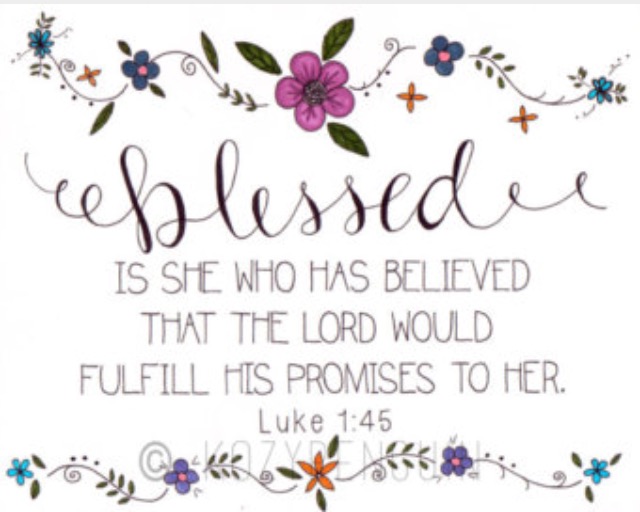 blessed
IS SHE WHO HAS BELIEVED
THAT THE LORD WOULD
FULFILL HIS PROMISES TO HER.
Luke 1:45
© KOZYPENGUIN